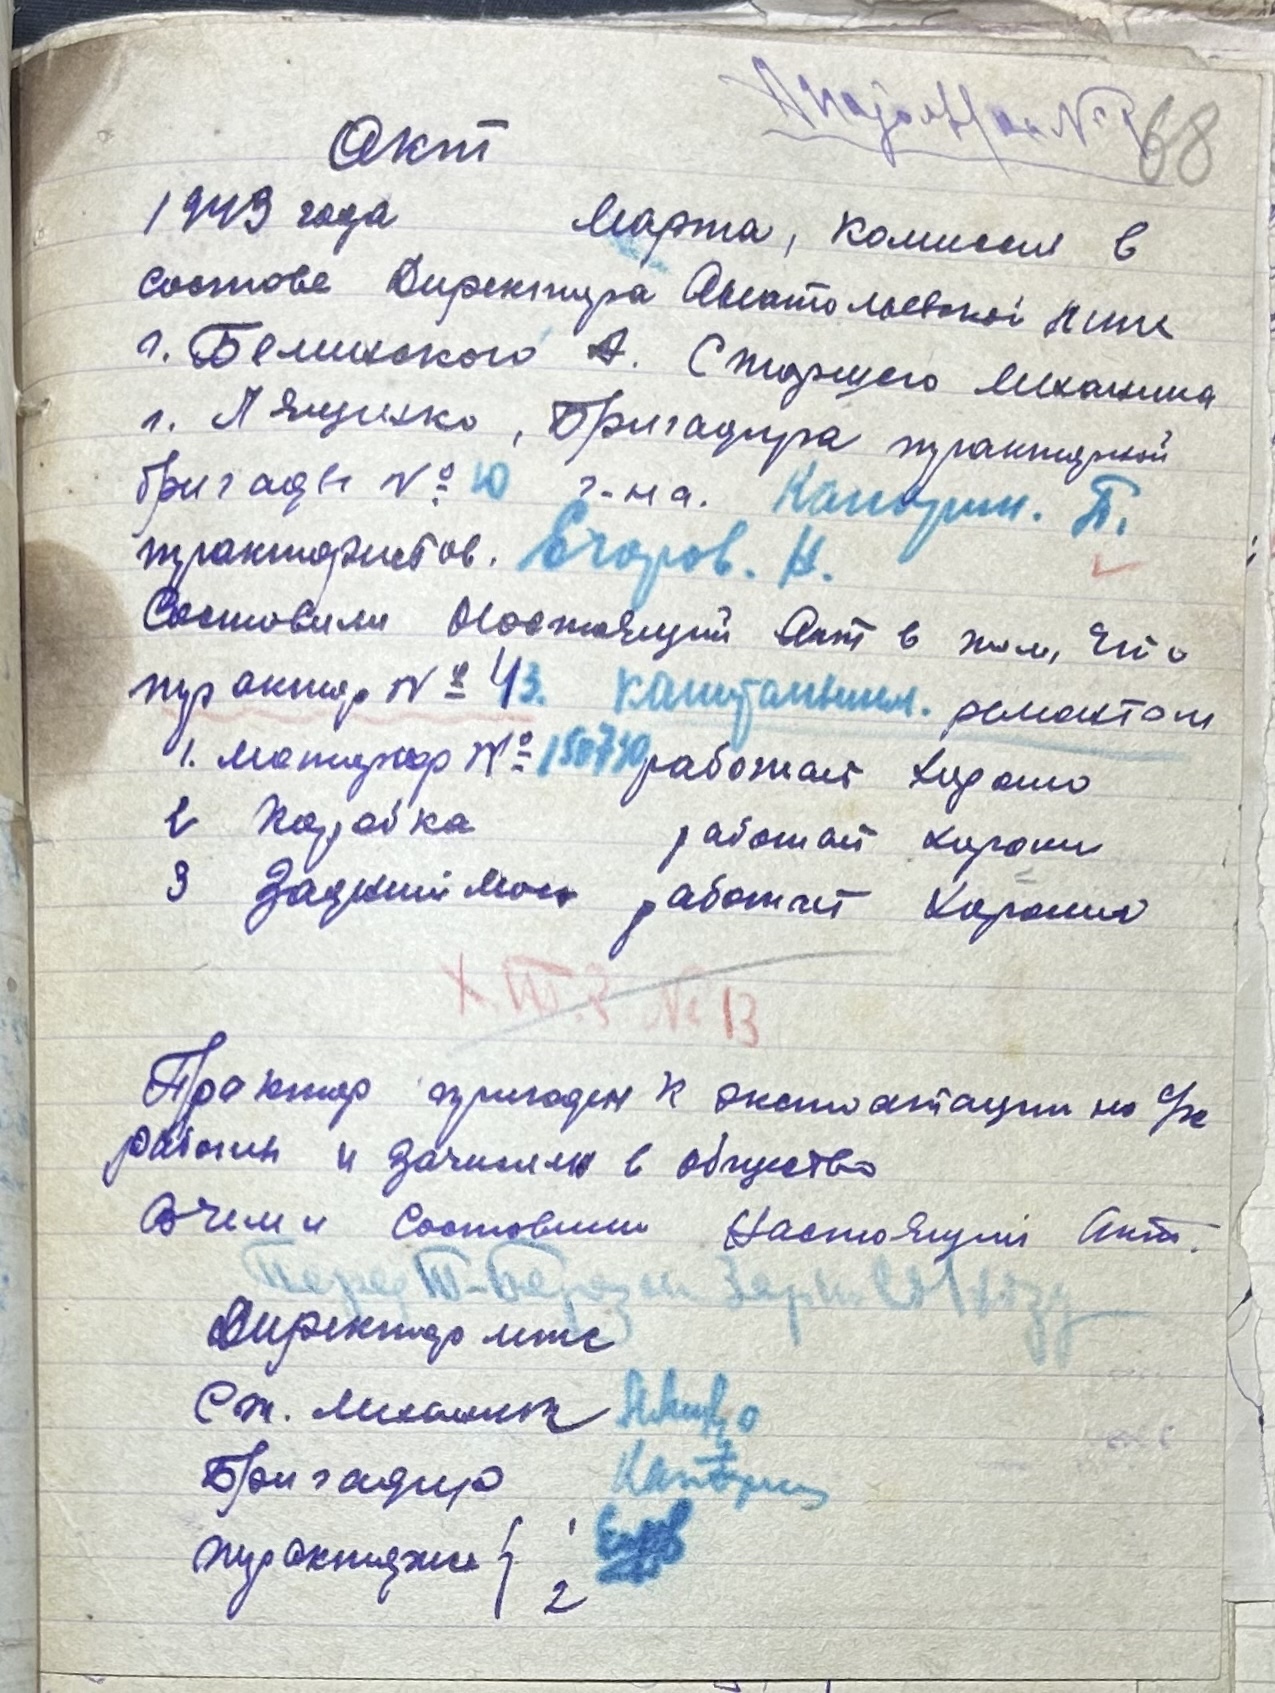 68
Акт
1943 года Марта, комиссия в
составе Директора Анатольевской мтс
г. Белинского А. Старшего механика
г. Лященко, Бригадира тракторной
бригады № 10 г-на. Кантарин. П.
трактористов. Егоров. Н.
Составили настоящий Акт в том, что
трактор № 43. капитальным. ремонтом
1. мотор № 150730 работает хорошо
2 Коробка работает хорошо
3 Задний мост работает хорошо
Х.Т.З. № 13
Трактор пригоден к эксплоатации на с/х
работы и зачислен в общество
В чем и составили настоящий Акт.
Директор мтс
Ст. механик
Бригадир
трактористы { 1
2